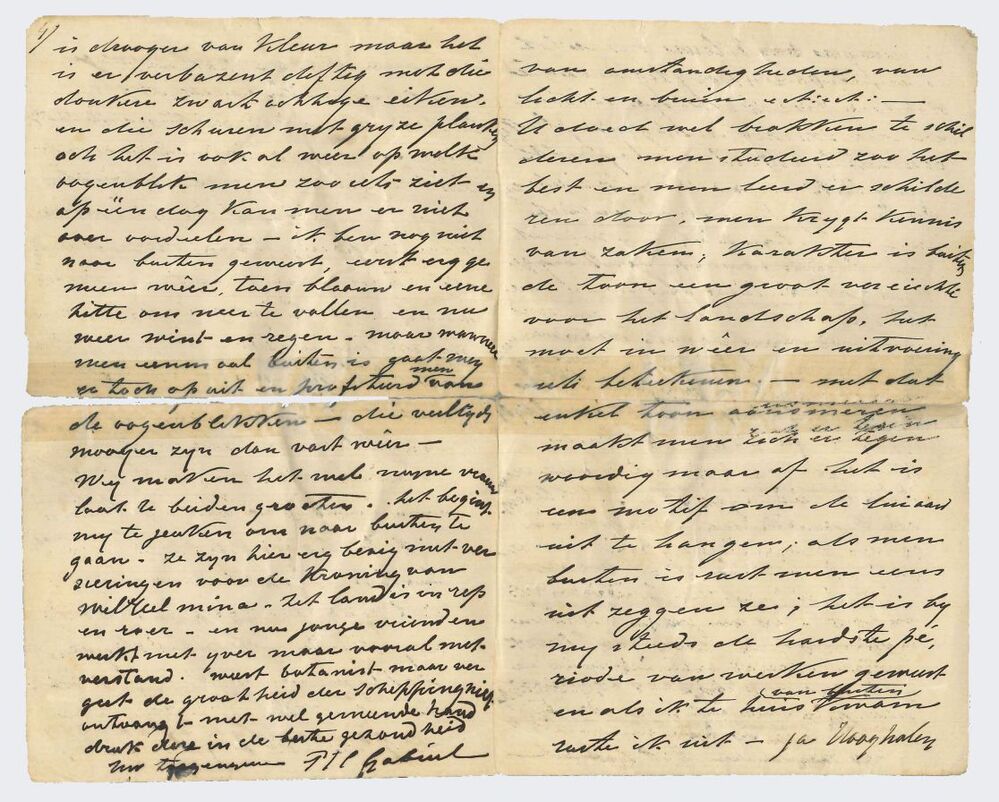 4)
is drooger van kleur maar het
is er verbazent deftig met die
donkere zwart achtige eiken.
en die schuren met gryze planken
och het is ook al weer op welk
oogenblik men zoo iets ziet en
op één dag kan men er niet
over oordeelen – ik ben nog niet
naar buiten geweest, eerst erg ge
meen wêer, toen blaauw en eene
hitte om neer te vallen en nu
weer wint en regen – maar wanneer
men eenmaal buiten is gaat men
er toch op uit en profiteerd men van
de oogenblikken – die veeltyds
mooyer zyn dan vast wêer –
Wy maken het wel myne vrouw
laat te beiden groeten. het begint
my te jeuken om naar buiten te
gaan. ze zyn hier erg bezig met ver
sieringen voor de Kroning van
Wilhelmina. het land is in rep
en roer – en nu jonge vrienden
werkt met yver maar vooral met
verstand. weest botanist maar ver
geet de grootheid der schepping niet
ontvangt met wel gemeende hand
druk deze in de beste gezondheid
PJC Gabriël
van omstandigheden, van
licht en buien ect: ect: –
U doed wel brokken te schil
deren men studeerd zoo het
best en men leerd er schilde
ren door, men krygt kennis
van zaken; karakter is buiten
de toon een groot vereischte
voor het landschap, het
moet in wêer en uitvoering
iets beteekenen. – met dat
enkel toon aansmeren
maakt men zich er tegen
woordig maar af het is
een motif om de luiaard
uit te hangen; als men
buiten is rust men eens
uit zeggen ze; het is by
my steeds de hardste pé,
riode van werken geweest
en als ik te huis van buiten kwam
rustte ik uit – ja Nooghalen